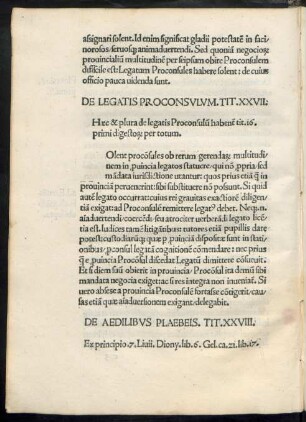 asignari solent. Id enim significat gladii potestatē in faci-
norosos seruosq; animaduertendi. Sed quoniā negocioꝝ
prouincialiū multitudinē per seipsum obire Proconsulem
difficile est: Legatum Proconsules habere solent: de cuius
officio pauca uidenda sunt.
DE LEGATIS PROCONSVLVM. TIT. XXVII.
Hæc & plura de legatis Proconsulū habent̄ tit.
primi digestoꝝ per totum.
Solent procōsules ob rerum gerendaꝝ multitudi
nem in ꝓuincia legatos statuere qui nō ꝓpria sed
mādata iurisdictione utantur: quos prius etiā q̄ in
prouinciā peruenerint sibi substituere nō possunt. Si quid
autē legato occurrat cuius rei grauitas exactiorē diligen
tiā exigat: ad Proconsulē remittere legat9 debet. Neq; n.
aīaduertendi: coercēdi: seu atrociter uerberādi legato licē
tia est. Iudices tamē litigātibus: tutores etiā pupillis dare
potest: custodiarūq; quæ ꝑ ꝓuinciā dispositæ sunt in stati
onibus: ꝓconsul legatū cognitionē cōmendare: nec prius
q̄ e ꝓuincia Procōsul discedat Legatū dimittere cōsueuit.
Et si diem suū obierit in prouincia: Procōsul ita demū sibi
mandata negocia exiget: ac si res integra non inueniat̄. Si
uero absese a prouincia Proconsulē fortasse cōtigerit: cau
sas etiā quæ aīaduersionem exigant: delegabit.
DE AEDILIBVS PLAEBEIS. TIT. XXVIII.
Ex principio Liuii. Diony. lib. 6. Gel. ca. 21. lib.